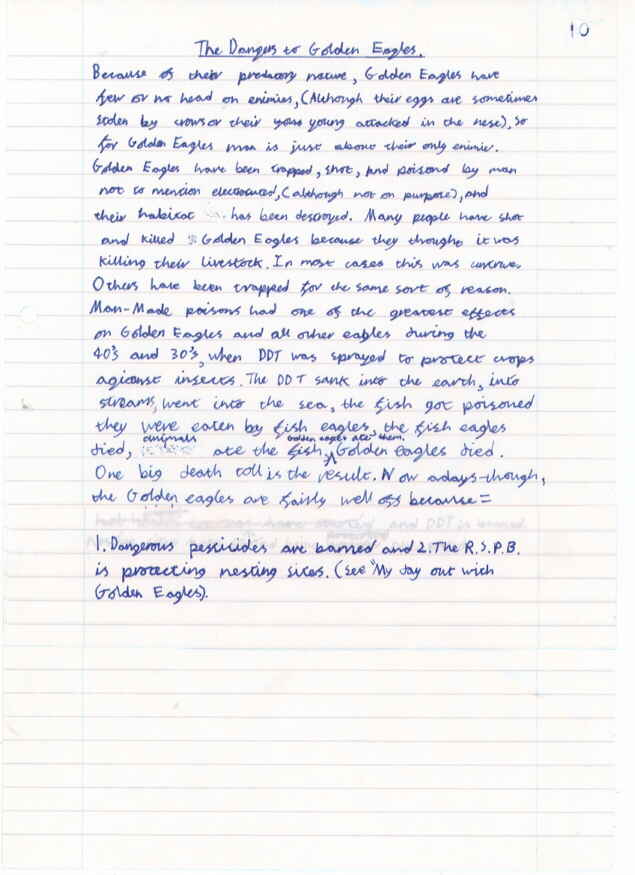 10
The Dangers to Golden Eagles.
Because of their predatory nature, Golden Eagles have
few or no head on enimies, (Although their eggs are sometimes
stolen by crows or their young attacked in the nest), so
for Golden Eagles man is just about their only enimie.
Golden Eagles have been trapped, shot, and poisond by man
not to mention electrocuted, (although not on purpose), and
their habitat has been destroyed. Many people have shot
and killed Golden Eagles because they thought it was
killing their livestock. In most cases this was untrue.
Others have been trapped for the same sort of reason.
Man-Made poisons had one of the greatest effects
on Golden Eagles and all other eagles during the
40's and 30's, when DDT was sprayed to protect crops
agianst insects. The DDT sank into the earth, into
streams, went into the sea, the fish got poisoned
they were eaten by fish eagles, the fish eagles
died, animals ate the fish, golden eagles ate them, Golden eagles died.
One big death toll is the result. Now adays though,
the Golden eagles are fairly well off because=
and DDT is banned
1. Dangerous pesticides are banned and 2. The R.S.P.B.
is protecting nesting sites. (See "My day out with
Golden Eagles).